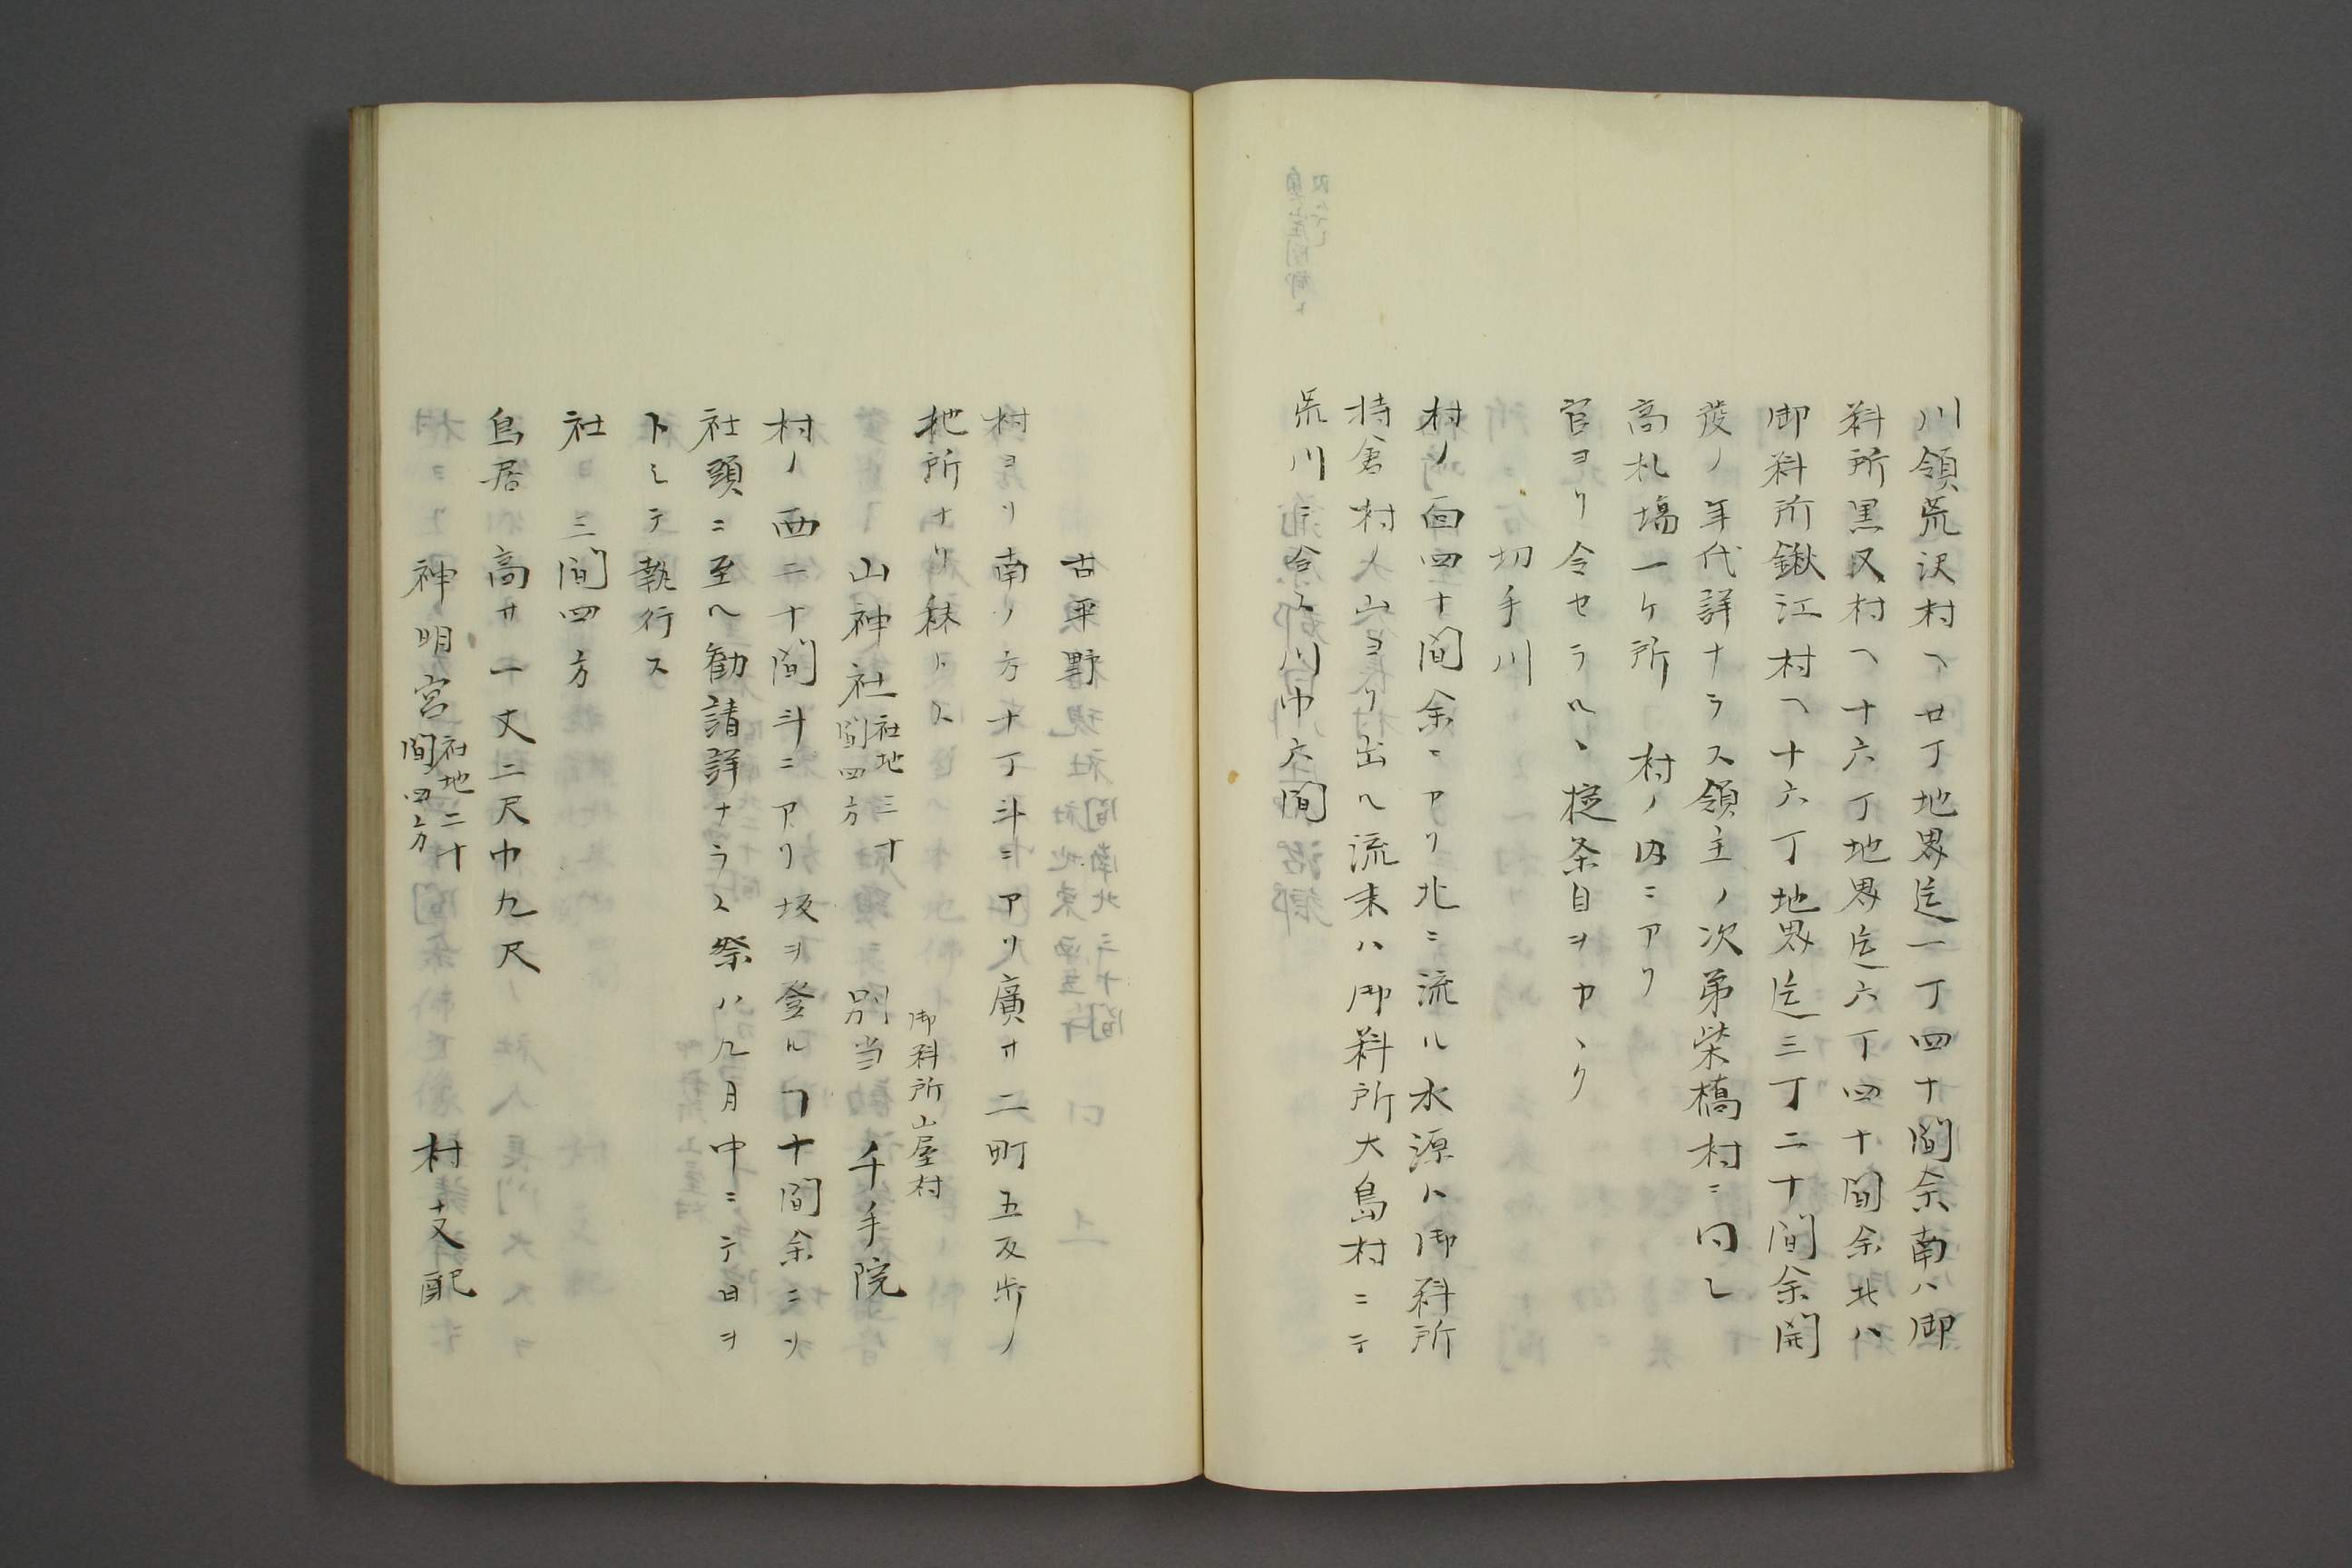 川領荒沢村ヘ廿丁地界迄一丁四十間余南ハ御
料所黒又村ヘ十六丁地界迄六丁四十間余北ハ
御料所鍬江村ヘ十六丁地界迄三丁二十間余開
発ノ年代詳ナラス領主ノ次弟栄橋村ニ同し
高札場一ケ所　村ノ内ニアリ
官ヨリ令セラルヽ掟条目ヲカヽク
切手川
村ノ面四十間余ニアリ北ニ流ル水源ハ御料所
持倉村大山ヨリ出ヘ流末ハ御料所大島村ニテ
荒川ニ合ス川巾六間
古平野
村ヨリ南ノ方十丁斗ニアリ廣サ二町五反歩ノ
地所ナリ秣トス
山神社 社地三十間四方　別当 御料所山屋村 千手院
村ノ西二十間斗ニアリ坂ヲ登ルヿ十間余ニソ
社頭ニ至ヘ勧請詳ナラス祭ハ九月中ニテ日ヲ
トシテ執行ス
社　三間四方
鳥居　高サ一丈二尺巾九尺
神明宮 社地二十間四方　村支配